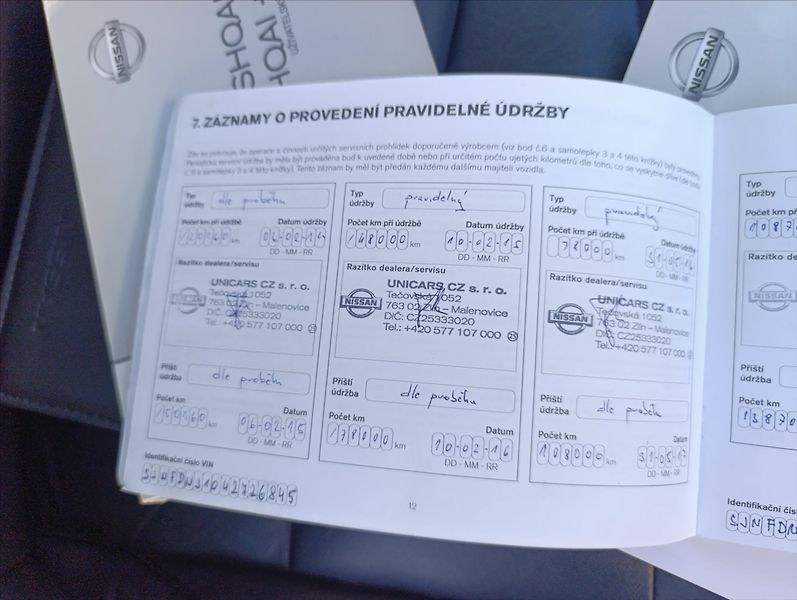 NISSAN
SHQAI
HQAI +
UŽIVATELSK
NISSAN
7. ZÁZNAMY O PROVEDENÍ PRAVIDELNÉ ÚDRŽBY
operace a činnosti určitých servisních prohlídek doporučené výrobcem (viz bod č.6 a samolepky 3 a 4 této knížky) byly
Periodická servisní údržba by měla být prováděna buď k uvedené době nebo při určitém počtu ujetých kilometrů dle toho, co se vyskytne dříve (dle bodu
č.6 a samolepky 3 a 4 této knížky). Tento záznam by měl být předán každému dalšímu majiteli vozidla.
Typ údržby
dle proběhu
Počet km při údržbě
Datum údržby
km
DD - MM - RR
Razítko dealera/servisu
UNICARS CZ s. r. o.
Tečovská 1052
763 02 Zlín – Malenovice
DIČ: CZ25333020
Tel.: +420 577 107 000
Příští údržba
dle proběhu
Počet km
Datum
km
06-02-15
DD - MM - RR
Identifikační číslo VIN
Typ údržby
pravidelný
Počet km při údržbě
Datum údržby
/48000 km
10-02-15
DD - MM - RR
Razítko dealera/servisu
NISSAN
UNICARS CZ s. r. o.
Tečovská 1052
763 02 Zlín – Malenovice
DIČ: CZ25333020
Tel.: +420 577 107 000 23
Příští údržba
dle proběhu
Počet km
Datum
/78000 km
10-02-16
DD - MM - RR
Typ údržby
pravidelný
Počet km při údržbě
Datum údržby
78000 km
31-05-16
DD - MM - RR
Razítko dealera/servisu
NISSAN
UNICARS CZ s. r. o.
Tečovská 1052
763 02 Zlín – Malenovice
DIČ: CZ25333020
Tel.: +420 577 107 000
Příští údržba
dle proběhu
Počet km
Datum
108000 km
31-05-17
DD - MM - RR
12
Typ údržby
Počet km při
1087
Razítko dea
Příští údržba
Počet km
13870
Identifikační čís
SJNFD